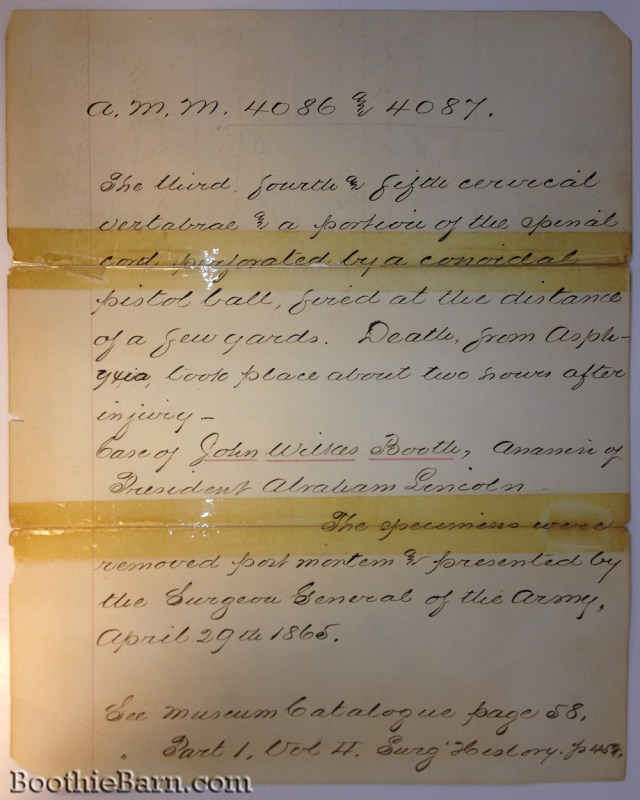 A. M. M. 4086 & 4087.
The third, fourth & fifth cervical
vertabrae & a portion of the spinal
cord perforated by a conoidal
pistol ball, fired at the distance
of a few yards. Death, from Asph-
yxia, took place about two hours after
injury -
Case of John Wilkes Booth, Assassin of
President Abraham Lincoln -
The specimens were
removed post mortem & presented by
the Surgeon General of the Army,
April 29th 1865.
See Museum Catalogue page 58,
" Part 1, Vol II. Surg' History. p 452.
BoothieBarn.com